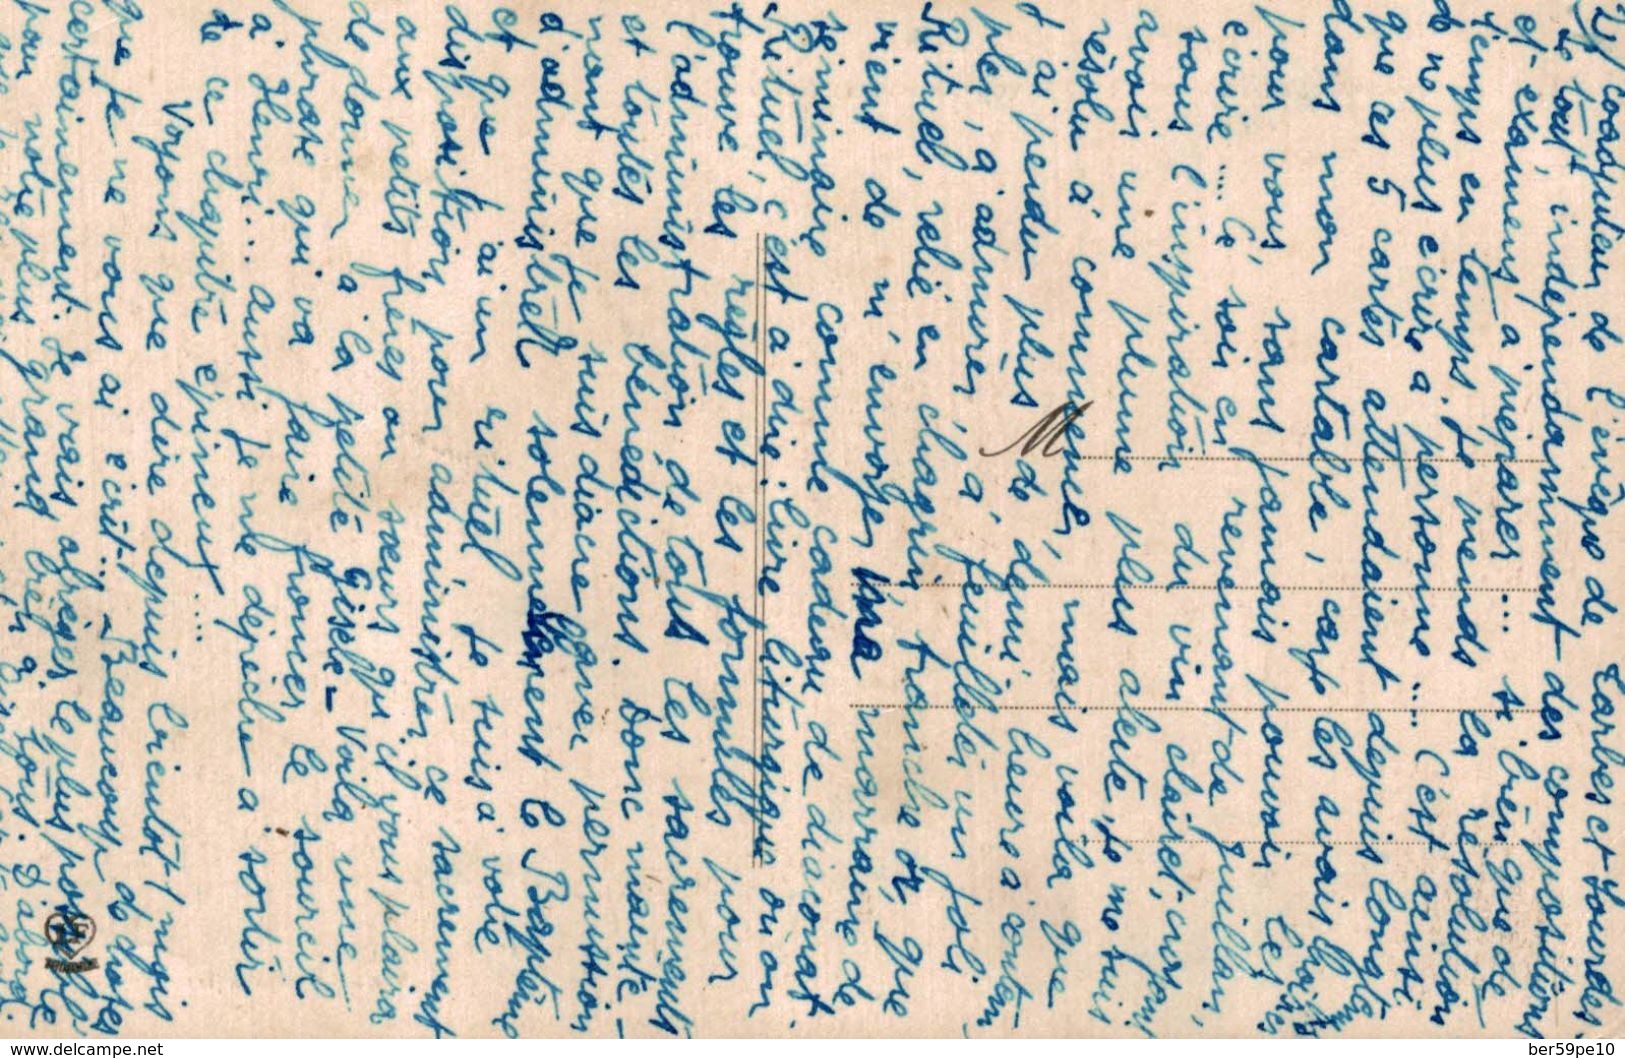 2) coadjuteur de l'évêque de Tarbes et Lourdes.
le tout, indépendamment des compositions
et examens à préparer ... si bien que de
temps en temps je prends la résolution
de ne plus écrire à personne .... C'est ainsi
que ces 5 cartes attendaient depuis longtemps
dans mon cartable, car je les avais
pour vous, sans jamais pouvoir les
écrire .... Ce soir en revenant de
sous l'inspiration du vin clairet, croyant
avoir une plume plus alerte, je me suis
résolu à commencer, mais voilà que
j'ai perdu plus de demi heure à contem
pler, à admirer, à feuilleter un joli
Rituel, relié en chagrin, tranche or, que
vient de m'envoyer ma marraine de
séminaire comme cadeau de diaconat
Rituel, c'est à dire : livre liturgique où on
trouve les règles et les formules pour
l'administration de tous les sacrements
et toutes les bénédictions. Donc mainte-
nant que je suis diacre j'avec permission
d'administrer solennellement le Baptême
et que j'ai un rituel je suis à votre
disposition pour administrer ce sacrement
aux petits frères ou sœurs qu'il vous plaira
de donner à la petite Gisèle - Voilà une
phrase qui va faire froncer le sourcil
à Henri... aussi je me dépêche à sortir
de ce chapitre épineux ....
Voyons que dire depuis bientôt 1 mois
que je ne vous ai écrit ... - Beaucoup de choses
certainement. Je vais abréger le plus possible
pour votre plus grand bien à tous. D'abord
M